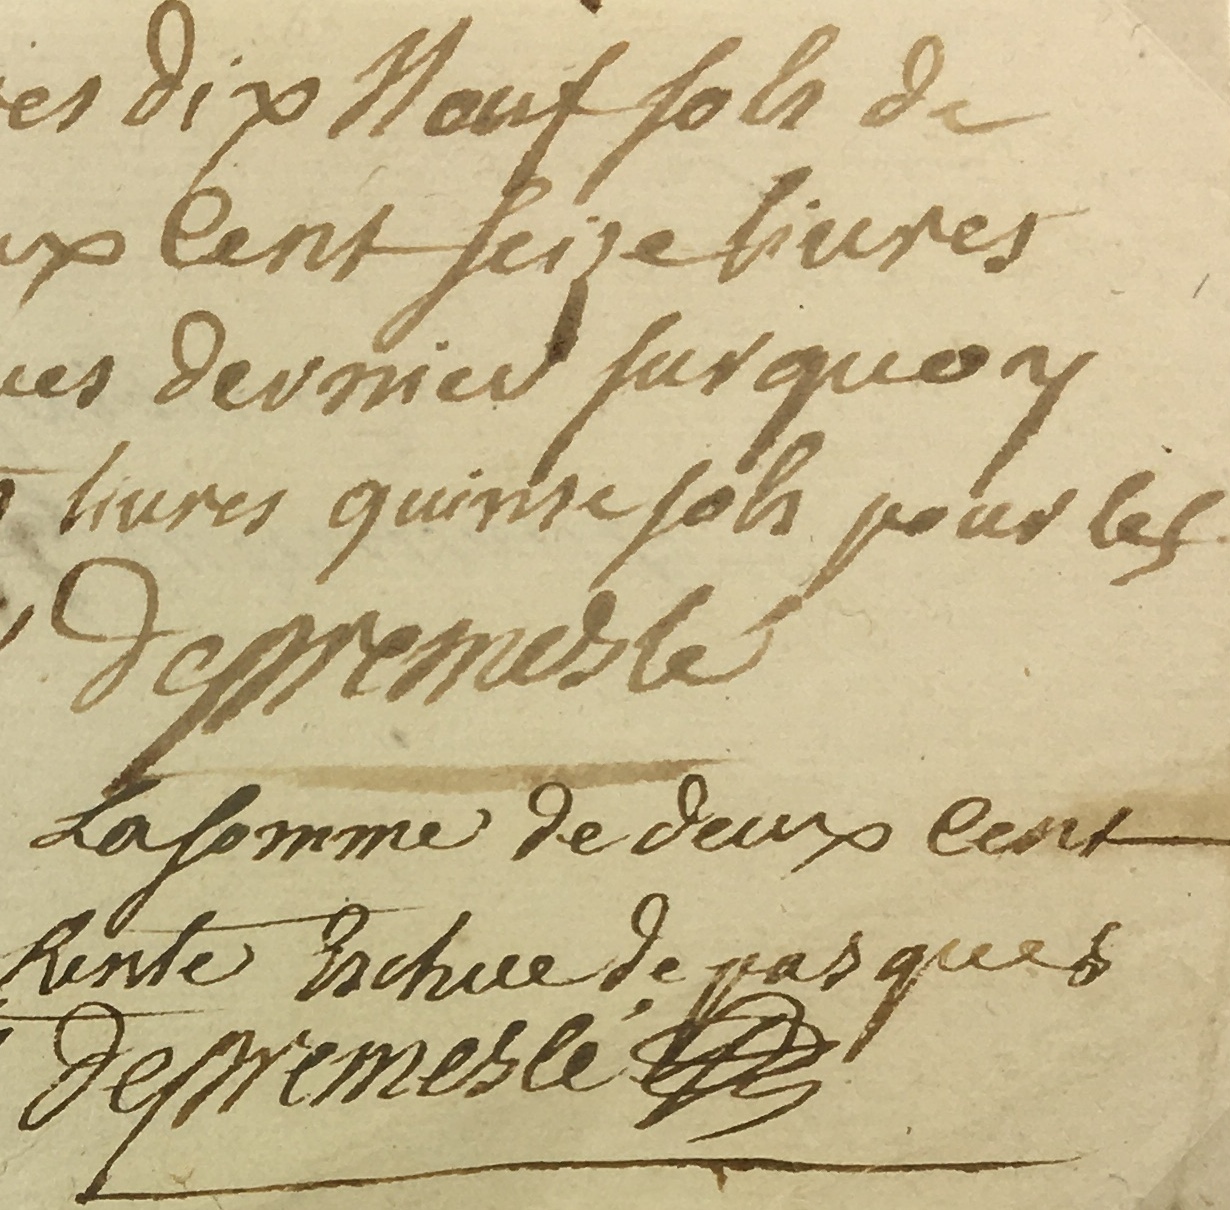 res dix Neuf sols de
ux Cent seize livres
ues dernier surquoy
livres quinse sols pour les
Despremeslé
La somme de deux Cent
Rente Eschue de pasques
Despremeslé